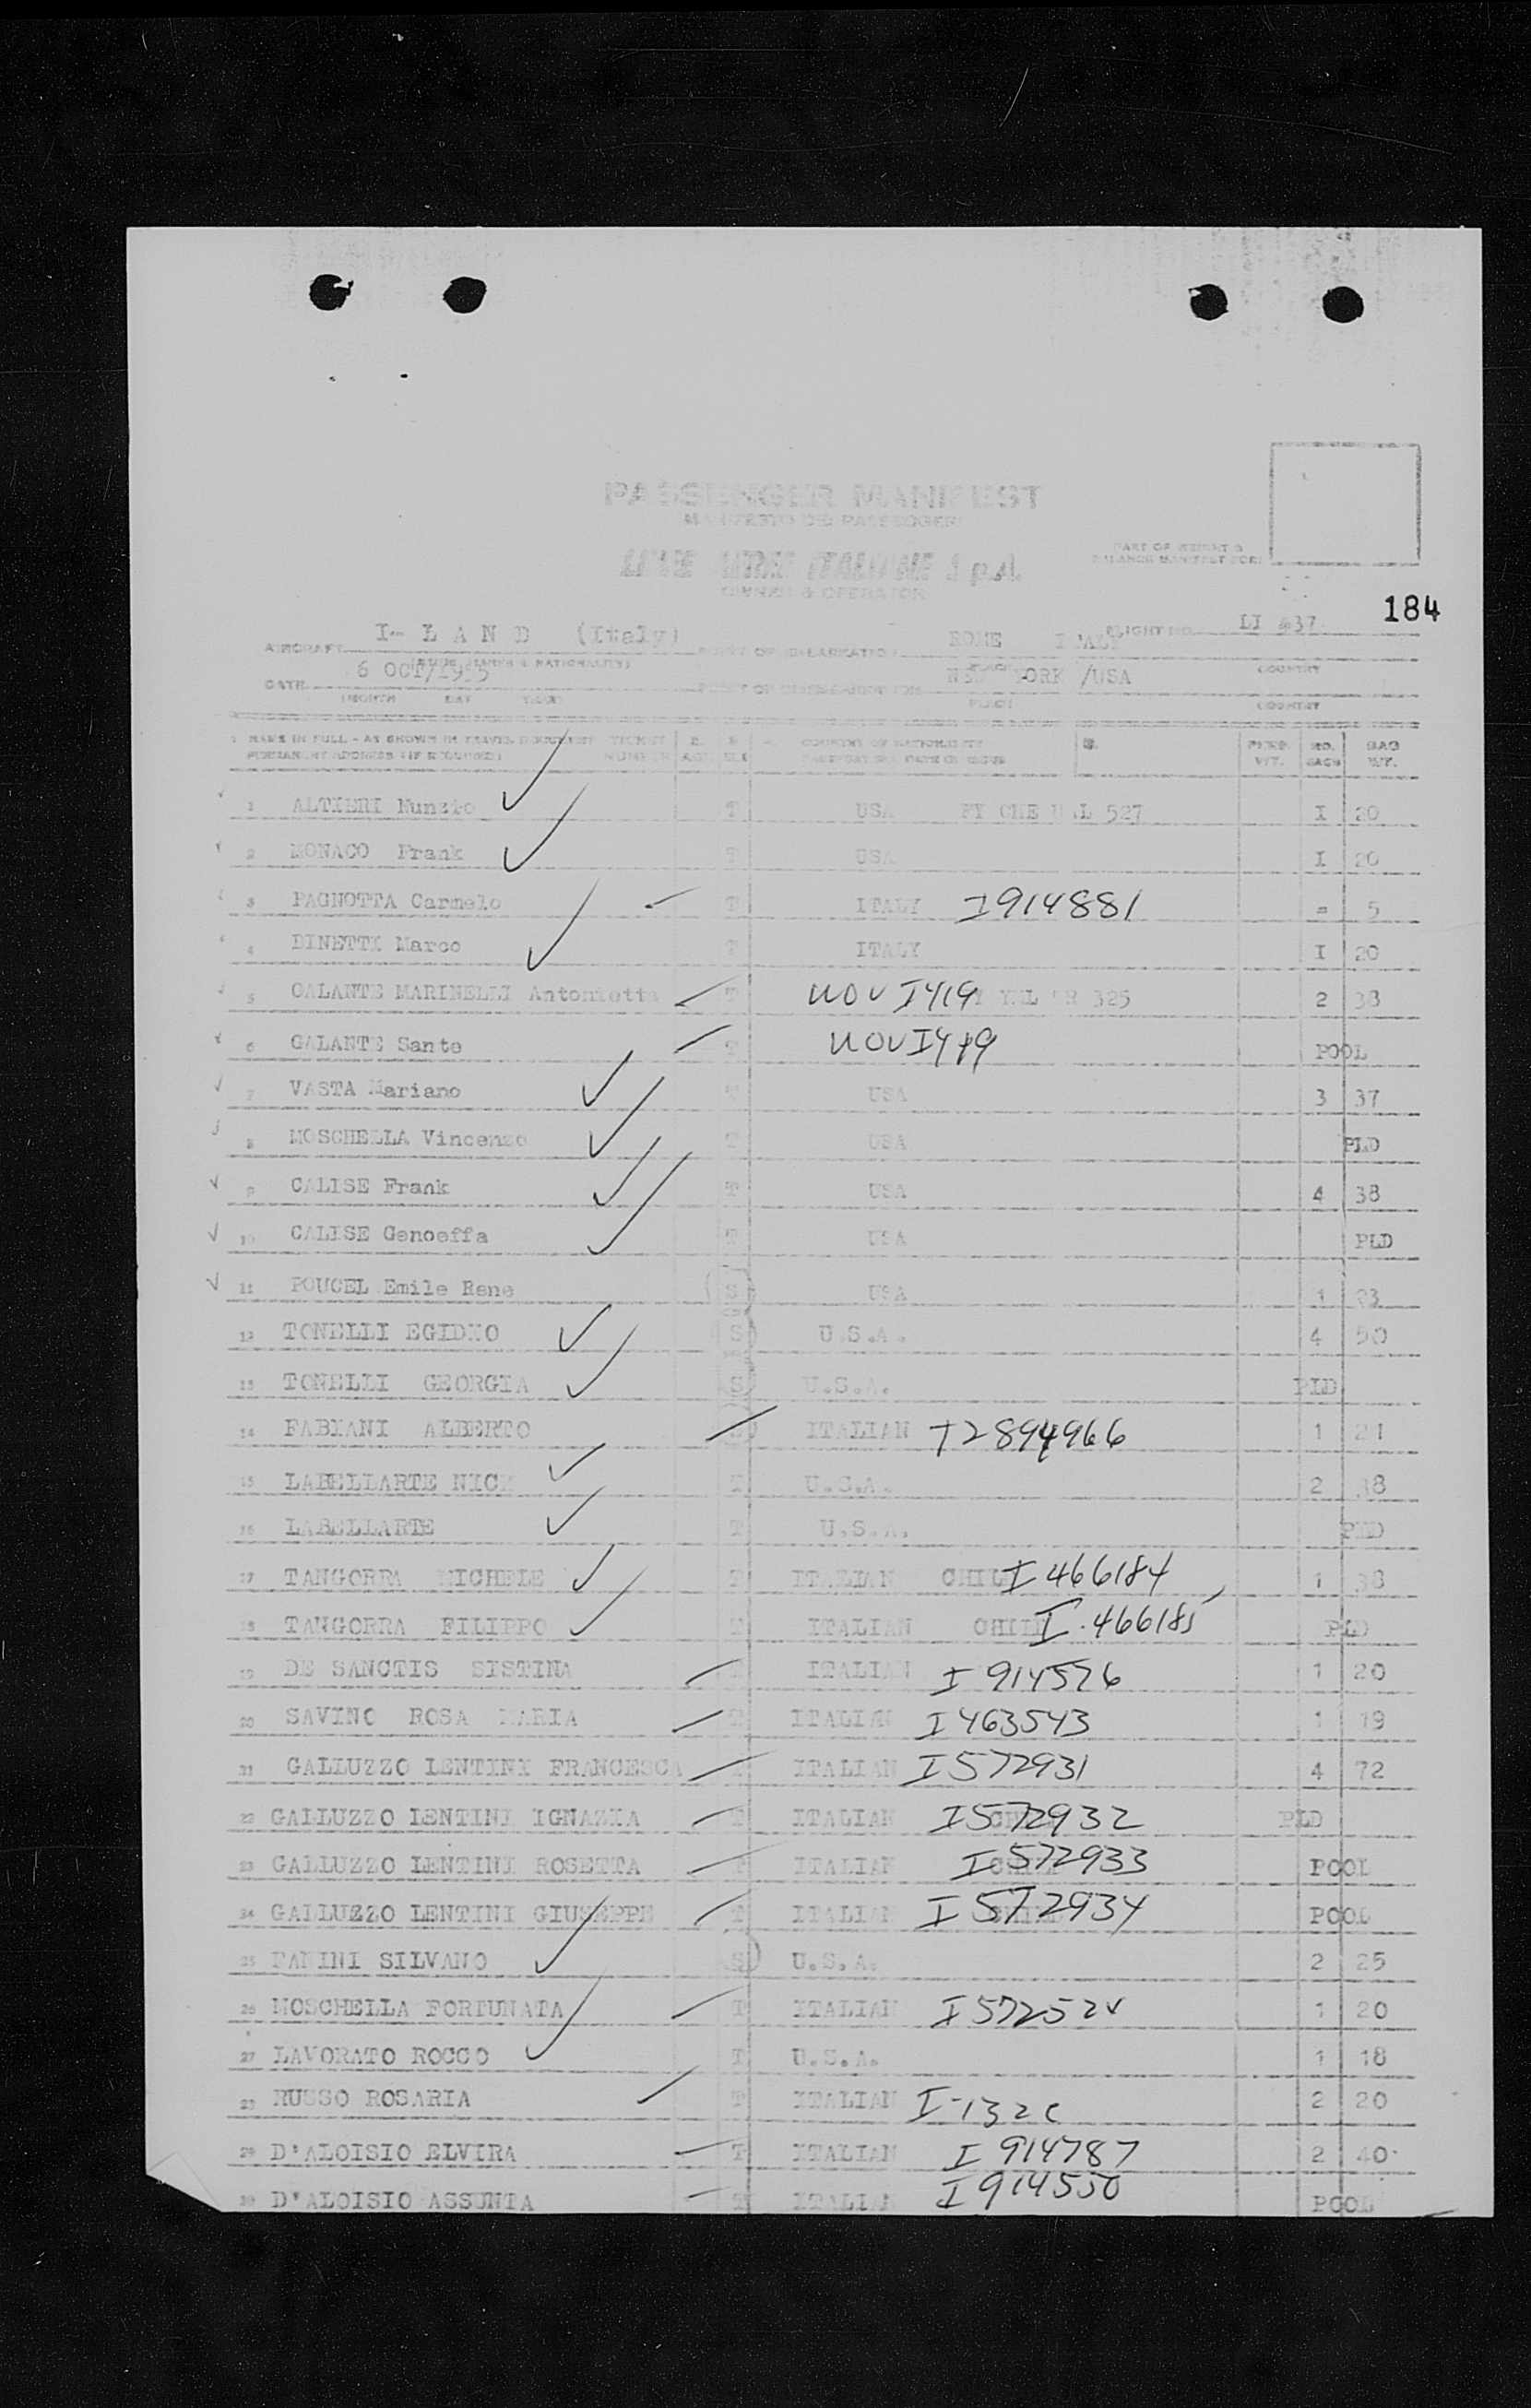 PASSENGER MANIFEST
MANIFESTO DEI PASSEGGERI
LINEE AEREE ITALIANE S.p.A.
OWNER & OPERATOR
PART OF WEIGHT &
BALANCE MANIFEST FOR:
184
AIRCRAFT I- L A N D (Italy) POINT OF EMBARKATION ROME ITALY FLIGHT NO. LI 437
DATE 6 OCT/1955 NEW YORK /USA
(MONTH DAY YEAR) PLACE COUNTRY
NAME IN FULL - AS SHOWN IN TRAVEL DOCUMENT TICKET COUNTRY OF NATIONALITY NO. BAG
PERMANENT ADDRESS (IF REQUIRED) NUMBER AGE SEX PASSPORT NO. DATE OF ISSUE WT. BAGS WT.
1 ALTIERI Nunzio T USA 527 I 20
2 MONACO Frank T USA I 20
3 PAGNOTTA Carmelo T ITALY I914881 = 5
4 DINETTI Marco T ITALY I 20
5 GALANTE MARINELLI Antonietta T NOV I419 325 2 38
6 GALANTE Sante T NOV I419 POOL
7 VASTA Mariano T USA 3 37
8 MOSCHELLA Vincenzo T USA PLD
9 CALISE Frank T USA 4 38
10 CALISE Genoeffa T USA PLD
11 POUCEL Emile Rene S USA 1 23
12 TONELLI EGIDIO S U.S.A. 4 50
13 TONELLI GEORGIA S U.S.A. PLD
14 FABIANI ALBERTO ITALIAN T2894966 1 21
15 LABELLARTE NICK T U.S.A. 2 38
16 LABELLARTE T U.S.A. PLD
17 TANGORRA MICHELE T ITALIAN CHILE I 466184 1 38
18 TANGORRA FILIPPO T ITALIAN CHILE I.466185 PLD
19 DE SANCTIS SISTINA ITALIAN I 914576 1 20
20 SAVINO ROSA MARIA T ITALIAN I 463543 1 19
21 GALLUZZO LENTINI FRANCESCA T ITALIAN I572931 4 72
22 GALLUZZO LENTINI IGNAZIA T ITALIAN I572932 PLD
23 GALLUZZO LENTINI ROSETTA T ITALIAN I572933 POOL
24 GALLUZZO LENTINI GIUSEPPE T ITALIAN I 572934 POOL
25 FANINI SILVANO S U.S.A. 2 25
26 MOSCHELLA FORTUNATA T ITALIAN I 572524 1 20
27 LAVORATO ROCCO T U.S.A. 1 18
28 RUSSO ROSARIA T ITALIAN 2 20
29 D'ALOISIO ELVIRA T ITALIAN I 914787 2 40
30 D'ALOISIO ASSUNTA T ITALIAN I914550 POOL